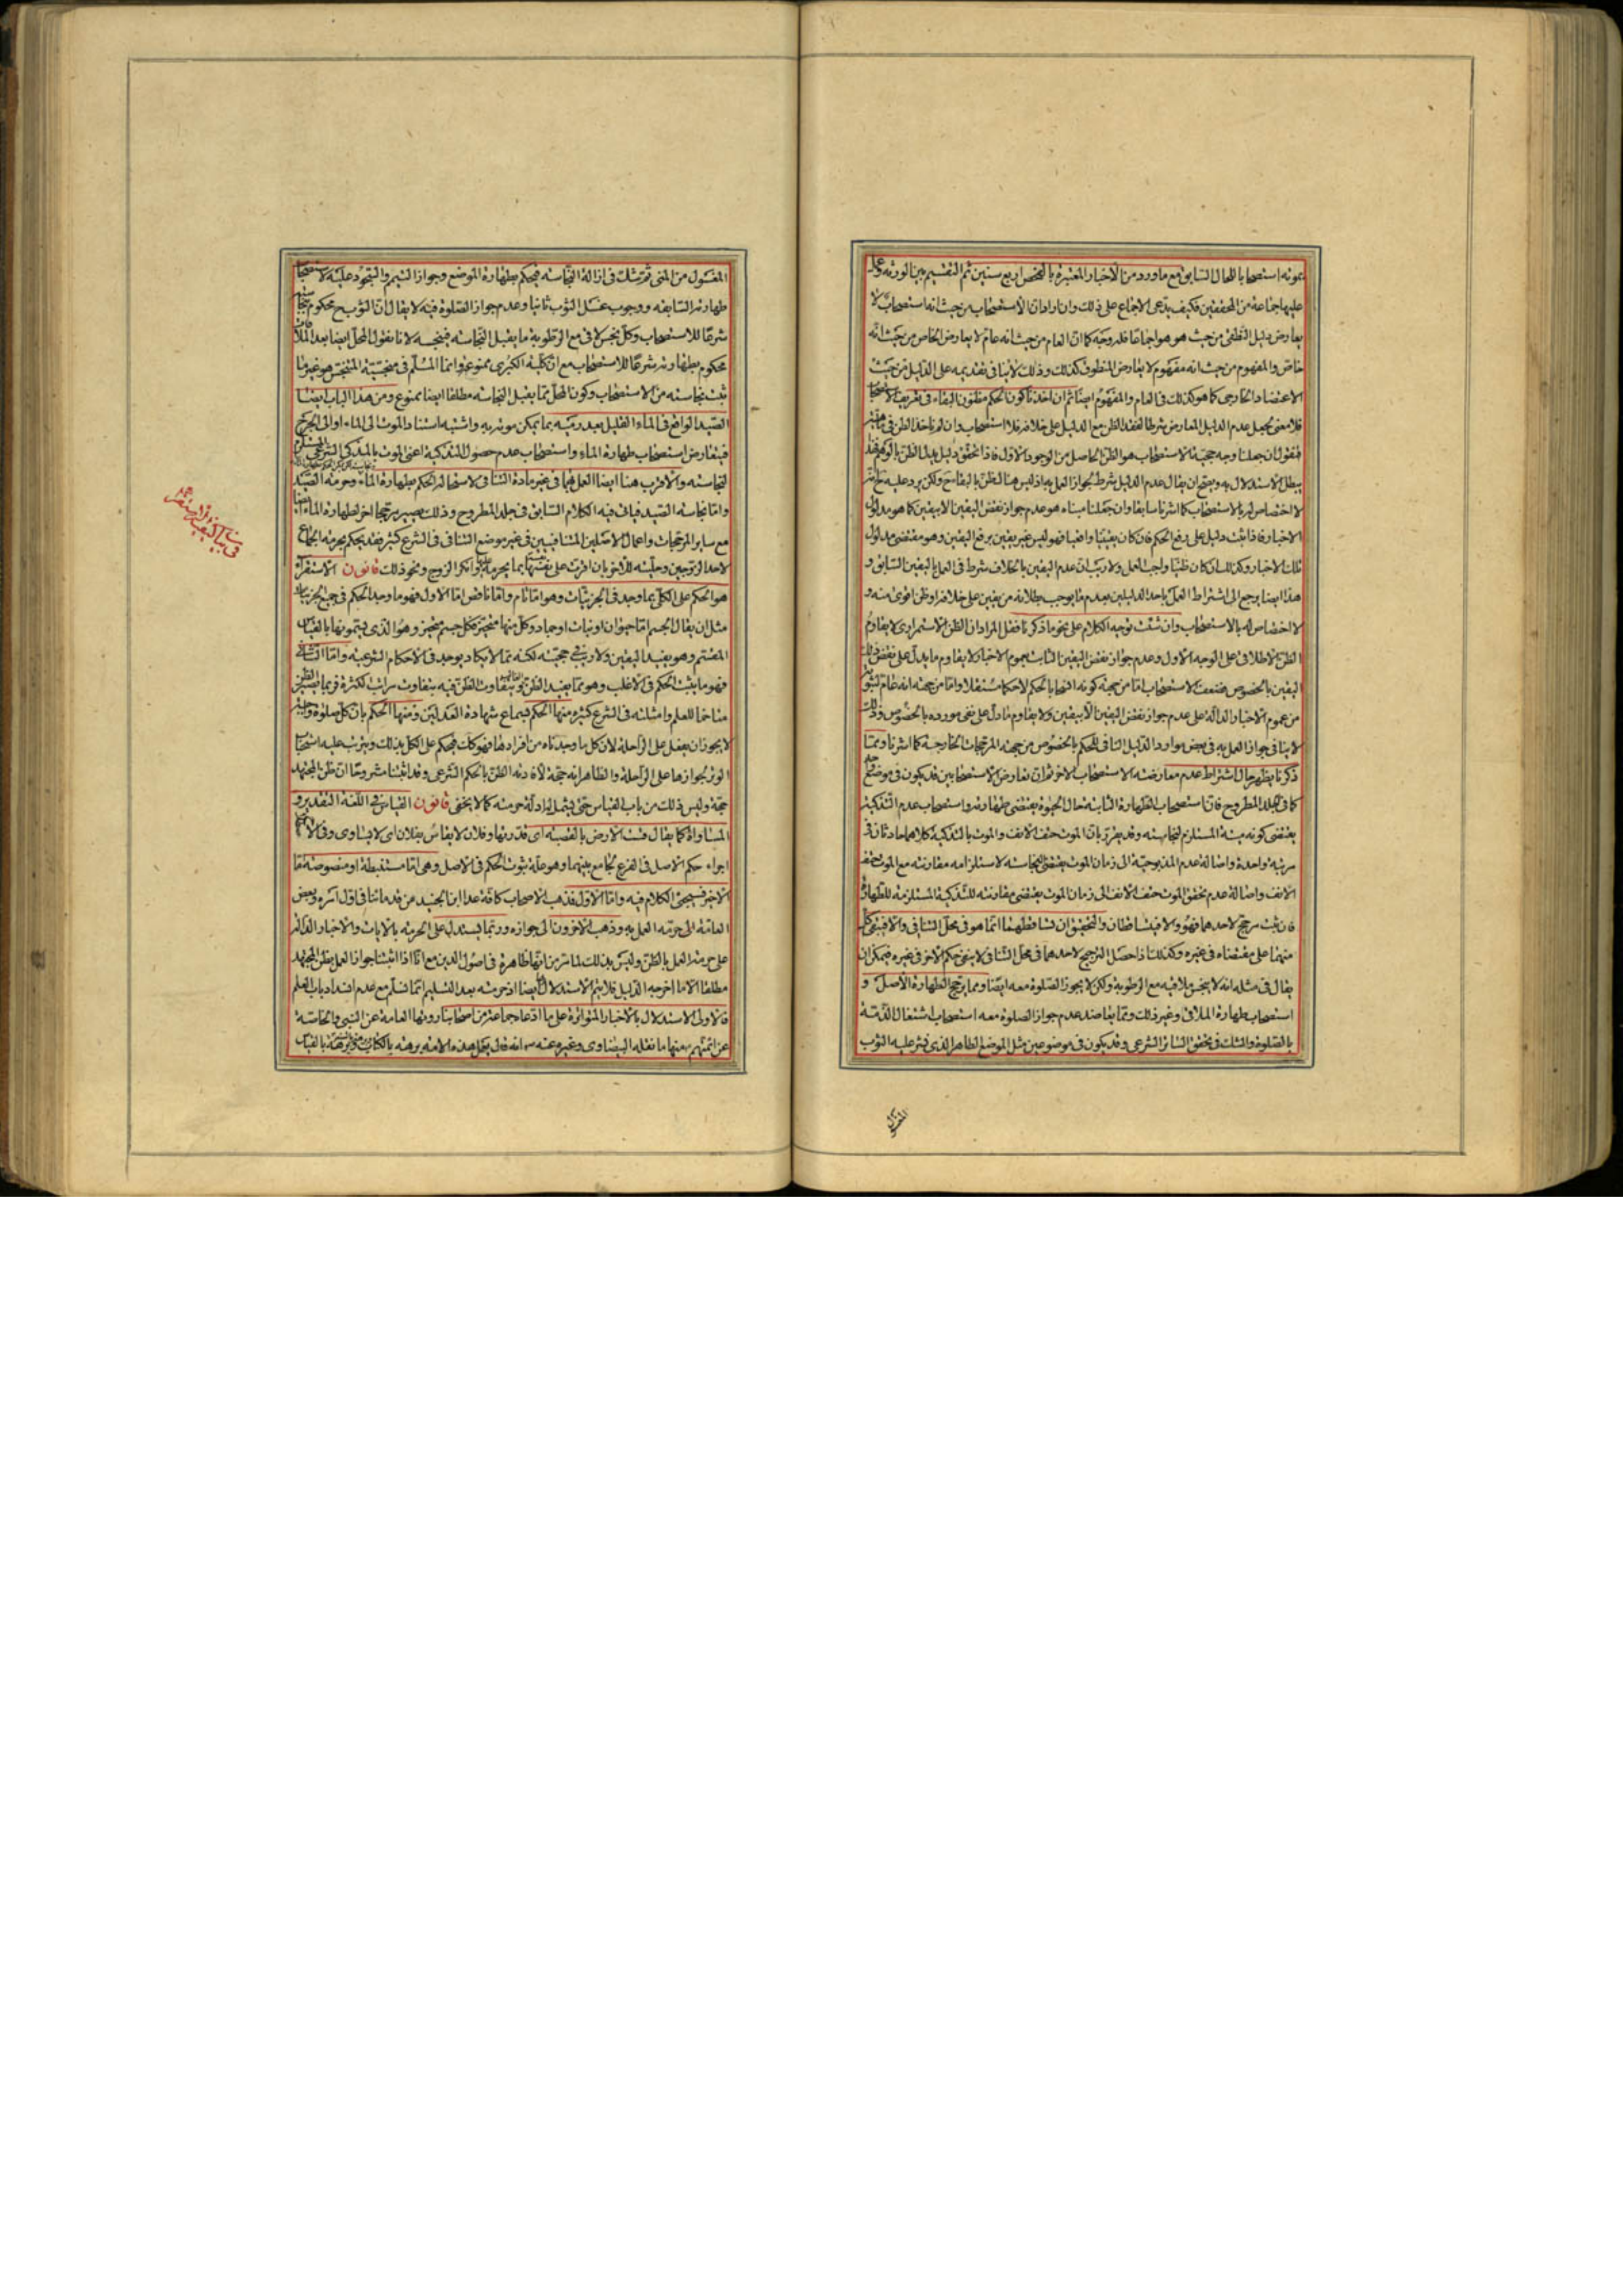 بموته استصحابا للحال السابق مع ما ورد من الأخبار المعتبرة بالفحص اربع سنين ثم التقسيم بين الورثة وعمل
عليها جماعة من المحققين فكيف يدعى الاجماع على ذلك وان اراد ان الاستصحاب من حيث انه استصحاب لا
يعارض دليل الظنى من حيث هو هو اجماعا فله وجه كما ان العام من حيث انه عام لا يعارض الخاص من حيث انه
خاص والمفهوم من حيث انه مفهوم لا يعارض المنطوق كذلك وذلك لا ينافى تقديمه على الدليل من حيث
الاعتضاد الخارجى كما هو كذلك فى العام والمفهوم ايضا ثم ان اخذنا كون الحكم مظنون البقاء فى تعريف الاستصحاب
فلا معنى لجعل عدم الدليل المعارض شرطا لفقد الظن مع الدليل على خلافه فلا استصحاب وان لم ناخذ الظن فى ماهيته
فنقول ان جعلنا وجه حجية الاستصحاب هو الظن الحاصل من الوجود الاول فاذا تحقق دليل يدل الظن بالوهم فيه
يبطل الاستدلال به ويتجه ان يقال عدم الدليل شرط لجواز العمل به اذ ليس هنا ظن بالبقاء ح ولكن يرد عليه ح انه
لا اختصاص له بالاستصحاب كما اشرنا سابقا وان جعلنا مبناه هو عدم جواز نقض اليقين الا بيقين كما هو مدلول
الاخبار فاذا ثبت دليل على رفع الحكم فان كان يقينيا واقعيا فهو ليس غير يقين يرفع اليقين وهو مقتضى مدلول
تلك الاخبار وكذلك ان كان ظنيا واجب العمل ولا ريب ان عدم اليقين بالخلاف شرط فى العمل باليقين السابق و
هذا ايضا يرجع الى اشتراط العمل باحد الدليلين بعدم ما يوجب بطلانه من يقين على خلافه او ظن اقوى منه و
لا اختصاص له بالاستصحاب وان شئت توجيه الكلام على نحو ما ذكرنا فقل المراد ان الظن الاستمرارى لا يقاوم
الظن الاطلاقى على الوجه الاول وعدم جواز نقض اليقين الثابت بعموم الاخبار لا يقاوم ما يدل على نقض ذلك
اليقين بالخصوص فضعف الاستصحاب اما من جهة كونه اثباتا بالحكم لاحكام مستقلا واما من جهة انه عام لثبوته
من عموم الاخبار الدالة على عدم جواز نقض اليقين الا بيقين ولا يقاوم ما دل على نفى مورده بالخصوص وذلك
لا ينافى جواز العمل به فى بعض موارد الدليل النافى للحكم بالخصوص من جهة المرجحات الخارجية كما اشرنا ومما
ذكرنا يظهر حال اشتراط عدم معارضة الاستصحاب الاخر ثم ان تعارض الاستصحابين قد يكون فى موضوع
كما فى الجلد المطروح فان استصحاب الطهارة الثابتة حال الحيوة يقتضى طهارته واستصحاب عدم التذكية
يقتضى كونه ميتة المستلزم لنجاسته وقد يقرر بان الموت حتف الانف والموت بالتذكية كلاهما حادثان فى
مرتبة واحدة واصالة عدم المذبوحية الى زمان الموت يقتضى النجاسة لاستلزامه مقارنته مع الموت حتف
الانف واصالة عدم تحقق الموت حتف الانف الى زمان الموت يقتضى مقارنته للتذكية المستلزمة للطهارة
فان ثبت مرجح لاحدهما فهو والا فيتساقطان والتحقيق ان تساقطهما انما هو فى محل التنافى والا فيبقى كل
منهما على مقتضاه فى غيره وكذلك اذا حصل الترجيح لاحدهما فى محل التنافى لا ينفى حكم الاخر فى غيره فيمكن ان
يقال فى مثله انه لا ينجس ملاقيه مع الرطوبة ولكن لا يجوز الصلوة معه ايضا ومما يرجح الطهارة الاصل و
استصحاب طهارة الملاقى وغير ذلك ومما يعاضد عدم جواز الصلوة معه استصحاب اشتغال الذمة
بالصلوة والشك فى تحقق الساتر الشرعى وقد يكون فى موضوعين مثل الموضع الطاهر الذى نشر عليه الثوب
المغسول من المنى ثم شك فى ازالة النجاسة فيحكم بطهارة الموضع وجواز التيمم والسجود عليه لاستصحاب
طهارته السابقة ووجوب غسل الثوب ثانيا وعدم جواز الصلوة فيه لا يقال ان الثوب ح محكوم بنجاسته
شرعا للاستصحاب وكل نجس لاقى مع الرطوبة ما يقبل النجاسة فينجسه لانا نقول المحل ايضا بعد الملاقات
محكوم بطهارته شرعا للاستصحاب مع ان كلية الكبرى ممنوعة وانما المسلم فى منجسية المتنجس هو غير ما
ثبت نجاسته من الاستصحاب وكون المحل مما يقبل النجاسة مطلقا ايضا ممنوع ومن هذا الباب ايضا
الصيد الواقع فى الماء القليل بعد رميه بما يمكن موته به واشتبه استناد الموت الى الماء او الى الجرح
فيتعارض استصحاب طهارة الماء واستصحاب عدم حصول التذكية اعنى الموت بالمذكى الشرعى المستلزم
لنجاسته والاقرب هنا ايضا العمل بهما فى غير مادة التنافى لاستحالة الحكم بطهارة الماء وحرمة الصيد
واما نجاسة الصيد فياتى فيه الكلام السابق فى جلد المطروح وذلك يصير مرجحا اخر لطهارة الماء ايضا
مع سائر المرجحات واعمال الاصلين المتنافيين فى غير موضع التنافى فى الشرع كثير فقد يحكم بحرمة الجماع
لاحد الزوجين وحليته للاخر بان اقرت على نفسها بما يحرمه عليها وانكر الزوج ونحو ذلك قانون الاستقراء
هو الحكم على الكلى بما وجد فى الجزئيات وهو اما تام واما ناقص اما الاول فهو ما وجد الحكم فى جميع الجزئيات
مثل ان يقال الجسم اما حيوان او نبات او جماد وكل منها متحيز فكل جسم متحيز وهو الذى يسمونها بالقياس
المقسم وهو يفيد اليقين ولا ريب فى حجيته لكنه مما لا يكاد يوجد فى الاحكام الشرعية واما الثانى
فهو ما يثبت الحكم فى الاغلب وهو مما يفيد الظن ويتفاوت الظن فيه بتفاوت مراتب الكثرة فربما يصير الظن
متاخما للعلم وامثلته فى الشرع كثيرة منها الحكم بسماع شهادة العدلين ومنها الحكم بان كل صلوة واجبة
لا يجوز ان يفعل على الراحلة لان كل ما وجدناه من افرادها فهو كك فيحكم على الكل بذلك ويترتب عليه استحباب
الوتر لجوازها على الراحلة والظاهر انه حجة لافادته الظن بالحكم الشرعى وقد اثبتنا مشروحا ان ظن المجتهد
حجة وليس ذلك من باب القياس حتى يشمله ادلة حرمته كما لا يخفى قانون القياس فى اللغة التقدير و
المساواة كما يقال قست الارض بالقصبة اى قدرتها وفلان لا يقاس بفلان اى لا يساوى وفى الاصطلاح
اجراء حكم الاصل فى الفرع لجامع بينهما وهو علة ثبوت الحكم فى الاصل وهى اما مستنبطة او منصوصة اما
الاخير فسيجئ الكلام فيه واما الاول فذهب الاصحاب كافة عدا ابن الجنيد من قدمائنا فى اول امره وبعض
العامة الى حرمة العمل به وذهب الاخرون الى جوازه وربما يستدل على الحرمة بالايات والاخبار الدالة
على حرمة العمل بالظن وليس بذلك لما مر من انها ظاهرة فى اصول الدين مع انا اذا اثبتنا جواز العمل بظن المجتهد
مطلقا الا ما اخرجه الدليل فلا يتم الاستدلال بها ايضا اذ حرمته بعد التسليم انما تسلم مع عدم انسداد باب العلم
فالاولى الاستدلال بالاخبار المتواترة على ما ادعاه جماعة من اصحابنا رووها العامة عن النبى والخاصة
عن ائمتهم منها ما نقله البيضاوى وغيره عنه انه قال تعمل هذه الامة برهة بالكتاب وبرهة بالسنة وبرهة بالقياس